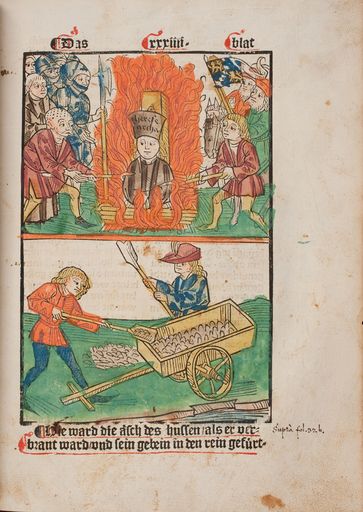 Das Cxxxiiii. blat
Hie ward die åsch des hussen/als er ver-
brant ward vnd sein gebein in den rein gefürt.
Supra fol. 33. b.